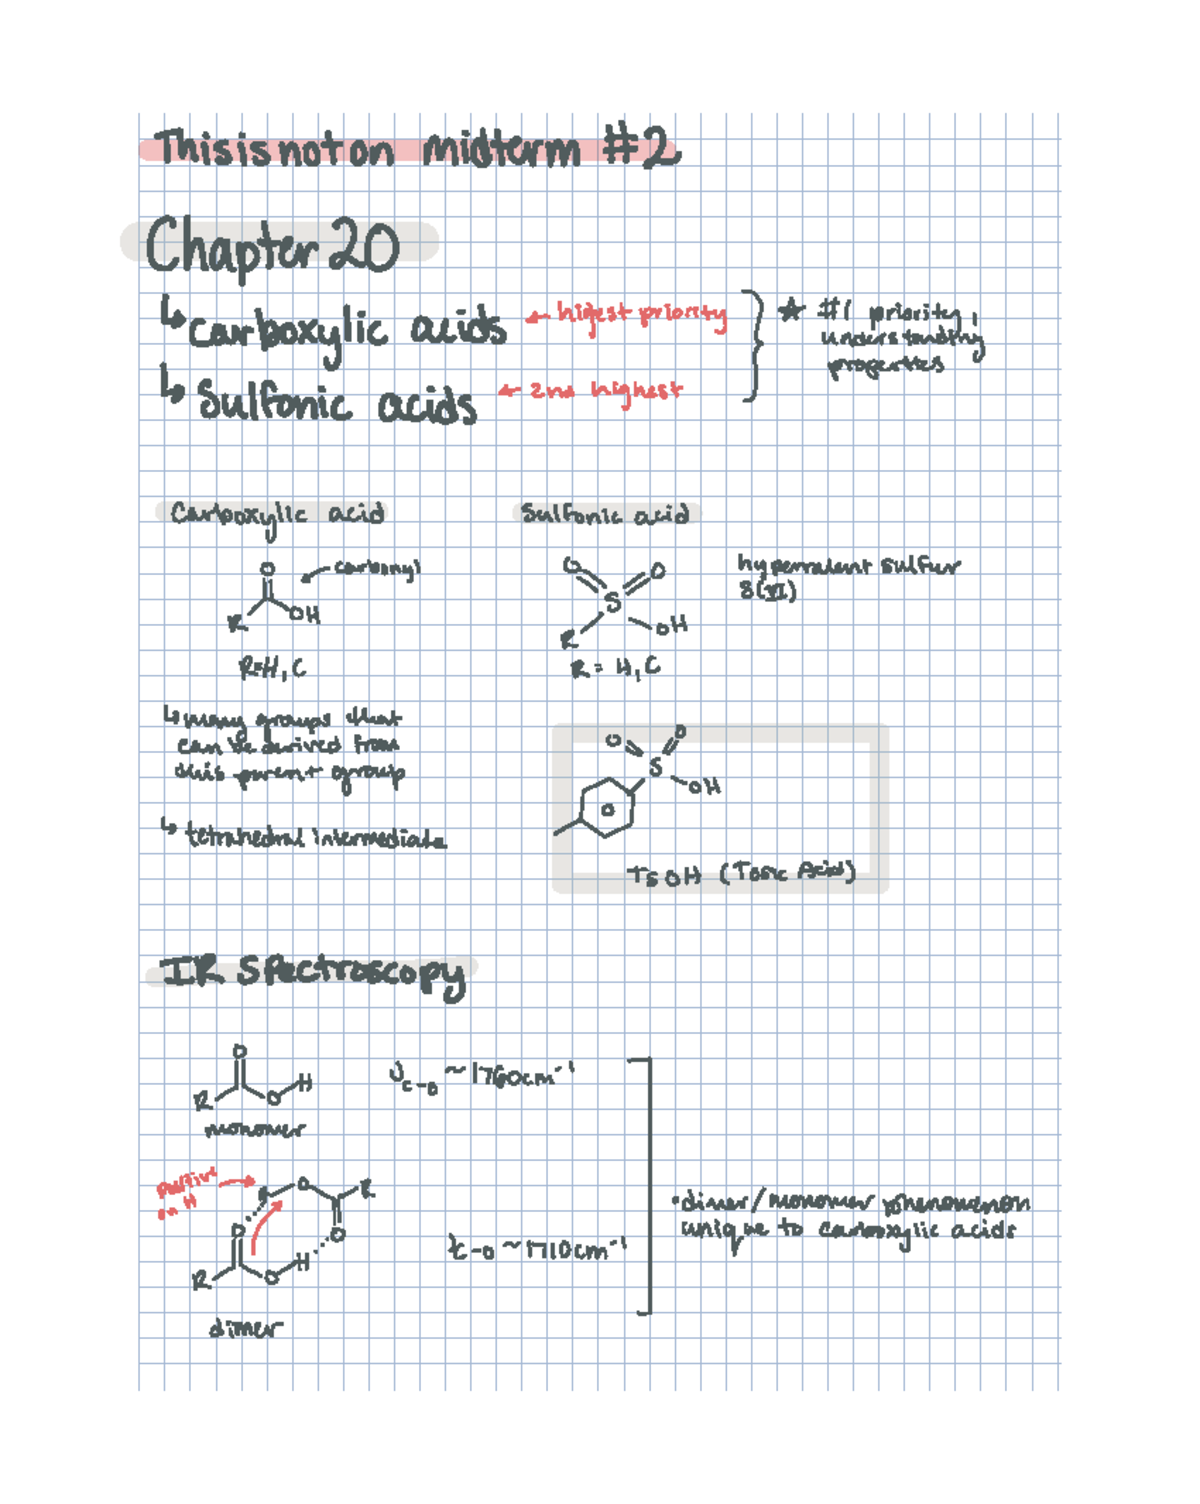 This is not on midterm #2
Chapter 20
↳ carboxylic acids ← higest priority
↳ Sulfonic acids ← 2nd highest
★ #1 priority,
understanding
properties
Carboxylic acid
O
← carbonyl
R OH
R=H, C
↳ many groups that
can be derived from
this parent group
↳ tetrahedral intermediate
Sulfonic acid
O O
S
R OH
R = H, C
hypervalent sulfur
S(VI)
O O
S
OH
TsOH (Tosic Acid)
IR Spectroscopy
O
R O H
monomer
ν c-o ~1760cm⁻¹
positive
on H
H O R
O O
R O H
dimer
c-o ~1710cm⁻¹
• dimer/monomer phenomenon
unique to carboxylic acids